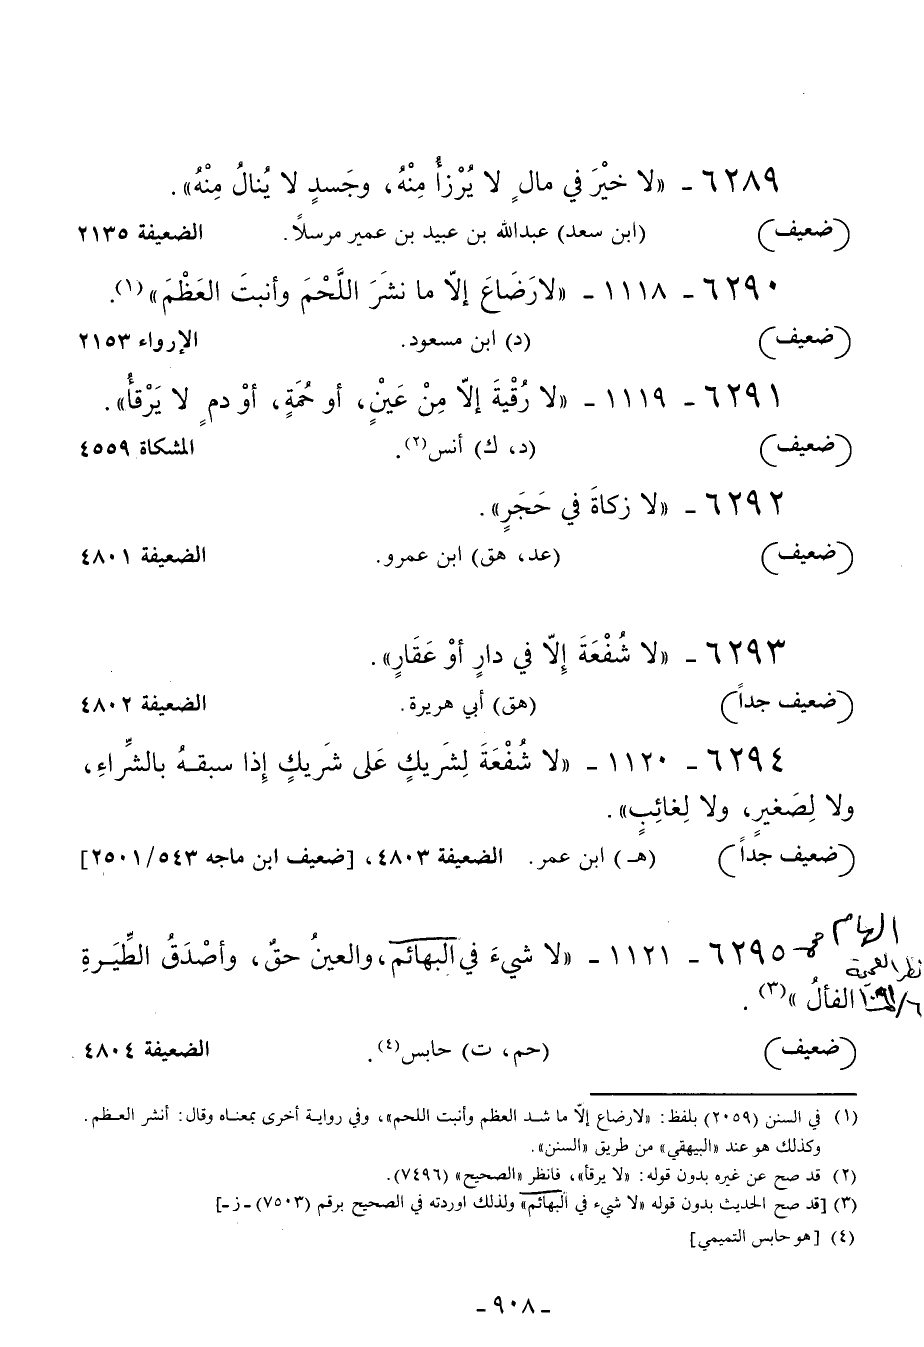 ٦٢٨٩ ـ «لا خيْرَ في مالٍ لا يُرْزأُ مِنْهُ، وجَسدٍ لا يُنالُ مِنْهُ».
(ضعيف) (ابن سعد) عبدالله بن عبيد بن عمير مرسلاً. الضعيفة ٢١٣٥
٦٢٩٠ ـ ١١١٨ ـ «لارَضَاعَ إلاّ ما نشرَ اللَّحْمَ وأنبتَ العَظْمَ»(١).
(ضعيف) (د) ابن مسعود. الإرواء ٢١٥٣
٦٢٩١ ـ ١١١٩ ـ «لا رُقْيةَ إلاّ مِنْ عَيْنٍ، أو حُمَةٍ، أوْ دمٍ لا يَرْقأُ».
(ضعيف) (د، ك) أنس(٢). المشكاة ٤٥٥٩
٦٢٩٢ ـ «لا زكاةَ في حَجَرٍ».
(ضعيف) (عد، هق) ابن عمرو. الضعيفة ٤٨٠١
٦٢٩٣ ـ «لا شُفْعَةَ إِلاّ في دارٍ أوْ عَقَارٍ».
(ضعيف جداً) (هق) أبي هريرة. الضعيفة ٤٨٠٢
٦٢٩٤ ـ ١١٢٠ ـ «لا شُفْعَةَ لِشَريكٍ عَلى شَريكٍ إِذا سبقهُ بالشِّراءِ،
ولا لِصَغيرٍ، ولا لِغائِبٍ».
(ضعيف جداً) (هـ) ابن عمر. الضعيفة ٤٨٠٣، [ضعيف ابن ماجه ٢٥٠١/٥٤٣]
الهام
٦٢٩٥ ـ ١١٢١ ـ «لا شيءَ في البهائم، والعينُ حقٌ، وأصْدَقُ الطِّيَرةِ
الفألُ»(٣).
(ضعيف) (حم، ت) حابس(٤). الضعيفة ٤٨٠٤
(١) في السنن (٢٠٥٩) بلفظ: «لارضاع إلاّ ما شد العظم وأنبت اللحم»، وفي رواية أخرى بمعناه وقال: أنشر العظم.
وكذلك هو عند «البيهقي» من طريق «السنن».
(٢) قد صح عن غيره بدون قوله: «لا يرقأ»، فانظر «الصحيح» (٧٤٩٦).
(٣) [قد صح الحديث بدون قوله «لا شيء في البهائم» ولذلك اوردته في الصحيح برقم (٧٥٠٣) ـ ز ـ]
(٤) [هو حابس التميمي]
ـ ٩٠٨ ـ